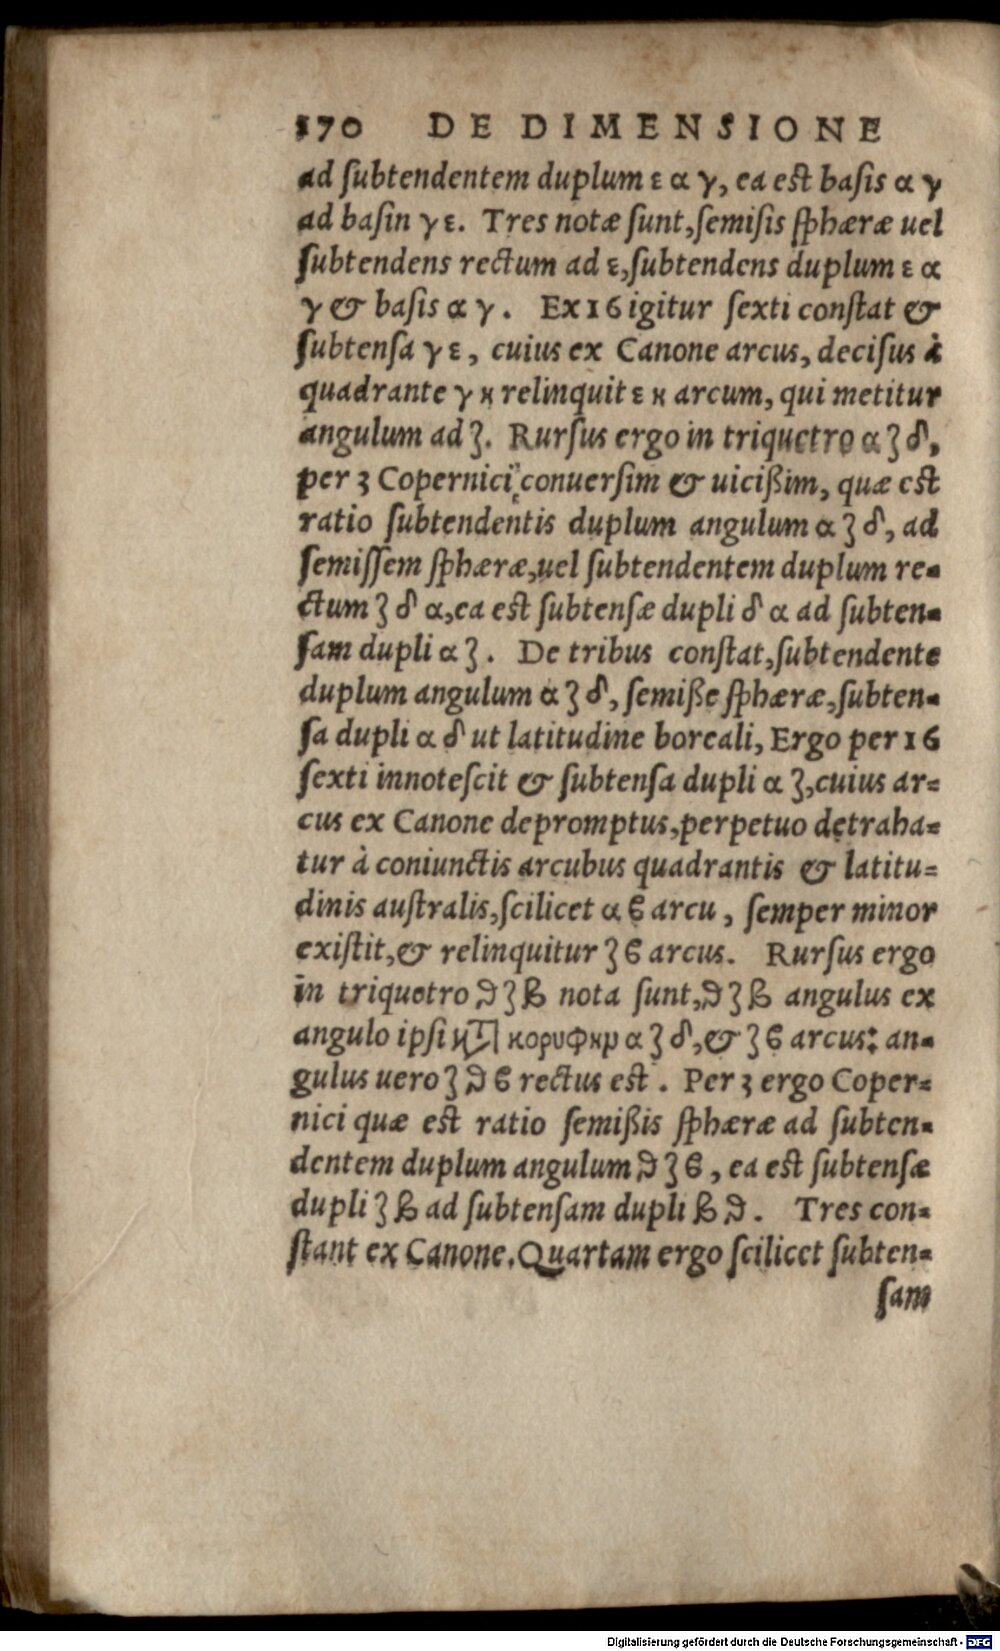 170 DE DIMENSIONE
ad ſubtendentem duplum ε α γ, ea eſt baſis α γ
ad baſin γ ε. Tres notæ ſunt, ſemiſis ſphæræ uel
ſubtendens rectum ad ε, ſubtendens duplum ε α
γ & baſis α γ. Ex 16 igitur ſexti conſtat &
ſubtenſa γ ε, cuius ex Canone arcus, deciſus à
quadrante γ κ relinquit ε κ arcum, qui metitur
angulum ad ζ. Rurſus ergo in triquetro α ζ δ,
per 3 Copernici conuerſim & uicißim, quæ eſt
ratio ſubtendentis duplum angulum α ζ δ, ad
ſemiſſem ſphæræ, uel ſubtendentem duplum re-
ctum ζ δ α, ea eſt ſubtenſæ dupli δ α ad ſubten-
ſam dupli α ζ. De tribus conſtat, ſubtendente
duplum angulum α ζ δ, ſemiße ſphæræ, ſubten-
ſa dupli α δ ut latitudine boreali, Ergo per 16
ſexti innoteſcit & ſubtenſa dupli α ζ, cuius ar-
cus ex Canone depromptus, perpetuo detraha-
tur à coniunctis arcubus quadrantis & latitu-
dinis auſtralis, ſcilicet α β arcu, ſemper minor
exiſtit, & relinquitur ζ β arcus. Rurſus ergo
in triquetro ϑ ζ β nota ſunt, ϑ ζ β angulus ex
angulo ipſi κορυφκμ α ζ δ, & ζ β arcus: an-
gulus uero ζ ϑ β rectus est. Per 3 ergo Coper-
nici quæ est ratio ſemißis ſphæræ ad ſubten-
dentem duplum angulum ϑ ζ β, ea est ſubtenſæ
dupli ζ β ad ſubtenſam dupli β ϑ. Tres con-
ſtant ex Canone. Quartam ergo ſcilicet ſubten-
ſam
Digitalisierung gefördert durch die Deutsche Forschungsgemeinschaft - DFG